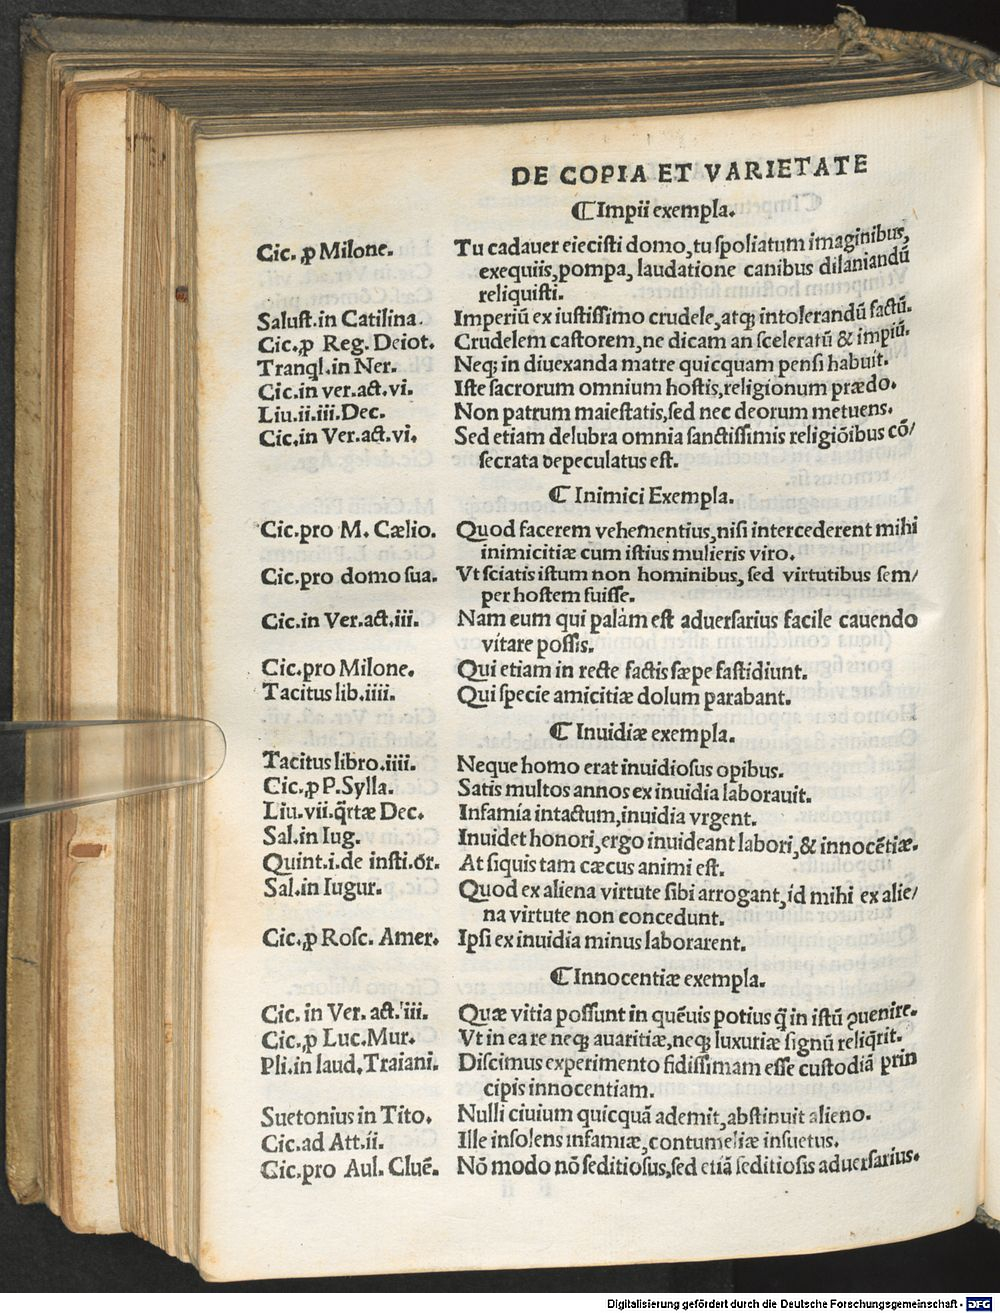 DE COPIA ET VARIETATE
⁋ Impii exempla.
Cic. ꝓ Milone. Tu cadauer eiecisti domo, tu spoliatum imaginibus,
exequiis, pompa, laudatione canibus dilaniandū
reliquisti.
Salust. in Catilina. Imperiū ex iustissimo crudele, atqꝫ intolerandū factū.
Cic. ꝓ Reg. Deiot. Crudelem castorem, ne dicam an sceleratū & impiū.
Tranql̄. in Ner. Neqꝫ in diuexanda matre quicquam pensi habuit.
Cic. in ver. act. vi. Iste sacrorum omnium hostis, religionum prædo.
Liu. ii. iii. Dec. Non patrum maiestatis, sed nec deorum metuens.
Cic. in Ver. act. vi. Sed etiam delubra omnia sanctissimis religiōibus cō/
secrata depeculatus est.
⁋ Inimici Exempla.
Cic. pro M. Cælio. Quod facerem vehementius, nisi intercederent mihi
inimicitiæ cum istius mulieris viro.
Cic. pro domo sua. Vt sciatis istum non hominibus, sed virtutibus sem/
per hostem fuisse.
Cic. in Ver. act. iii. Nam eum qui palàm est aduersarius facile cauendo
vitare possis.
Cic. pro Milone. Qui etiam in recte factis sæpe fastidiunt.
Tacitus lib. iiii. Qui specie amicitiæ dolum parabant.
⁋ Inuidiæ exempla.
Tacitus libro. iiii. Neque homo erat inuidiosus opibus.
Cic. ꝓ P. Sylla. Satis multos annos ex inuidia laborauit.
Liu. vii. q̄rtæ Dec. Infamía intactum, inuidia vrgent.
Sal. in Iug. Inuidet honori, ergo inuideant labori, & innocētiæ.
Quint. i. de insti. or̄. At siquis tam cæcus animi est.
Sal. in Iugur. Quod ex aliena virtute sibi arrogant, id mihi ex alie/
na virtute non concedunt.
Cic. ꝓ Rosc. Amer. Ipsi ex inuidia minus laborarent.
⁋ Innocentiæ exempla.
Cic. in Ver. act. iii. Quæ vitia possunt in quēuis potius q̄ in istū ꝯuenire.
Cic. ꝓ Luc. Mur. Vt in ea re neqꝫ auaritiæ, neqꝫ luxuriæ signū reliq̄rit.
Pli. in laud. Traiani. Discimus experimento fidissimam esse custodiā prin
cipis innocentiam.
Suetonius in Tito. Nulli ciuium quicquā ademit, abstinuit alieno.
Cic. ad Att. ii. Ille insolens infamiæ, contumeliæ insuetus.
Cic. pro Aul. Cluē. Nō modo nō seditiosus, sed etiā seditiosis aduersarius.
Digitalisierung gefördert durch die Deutsche Forschungsgemeinschaft - DFG